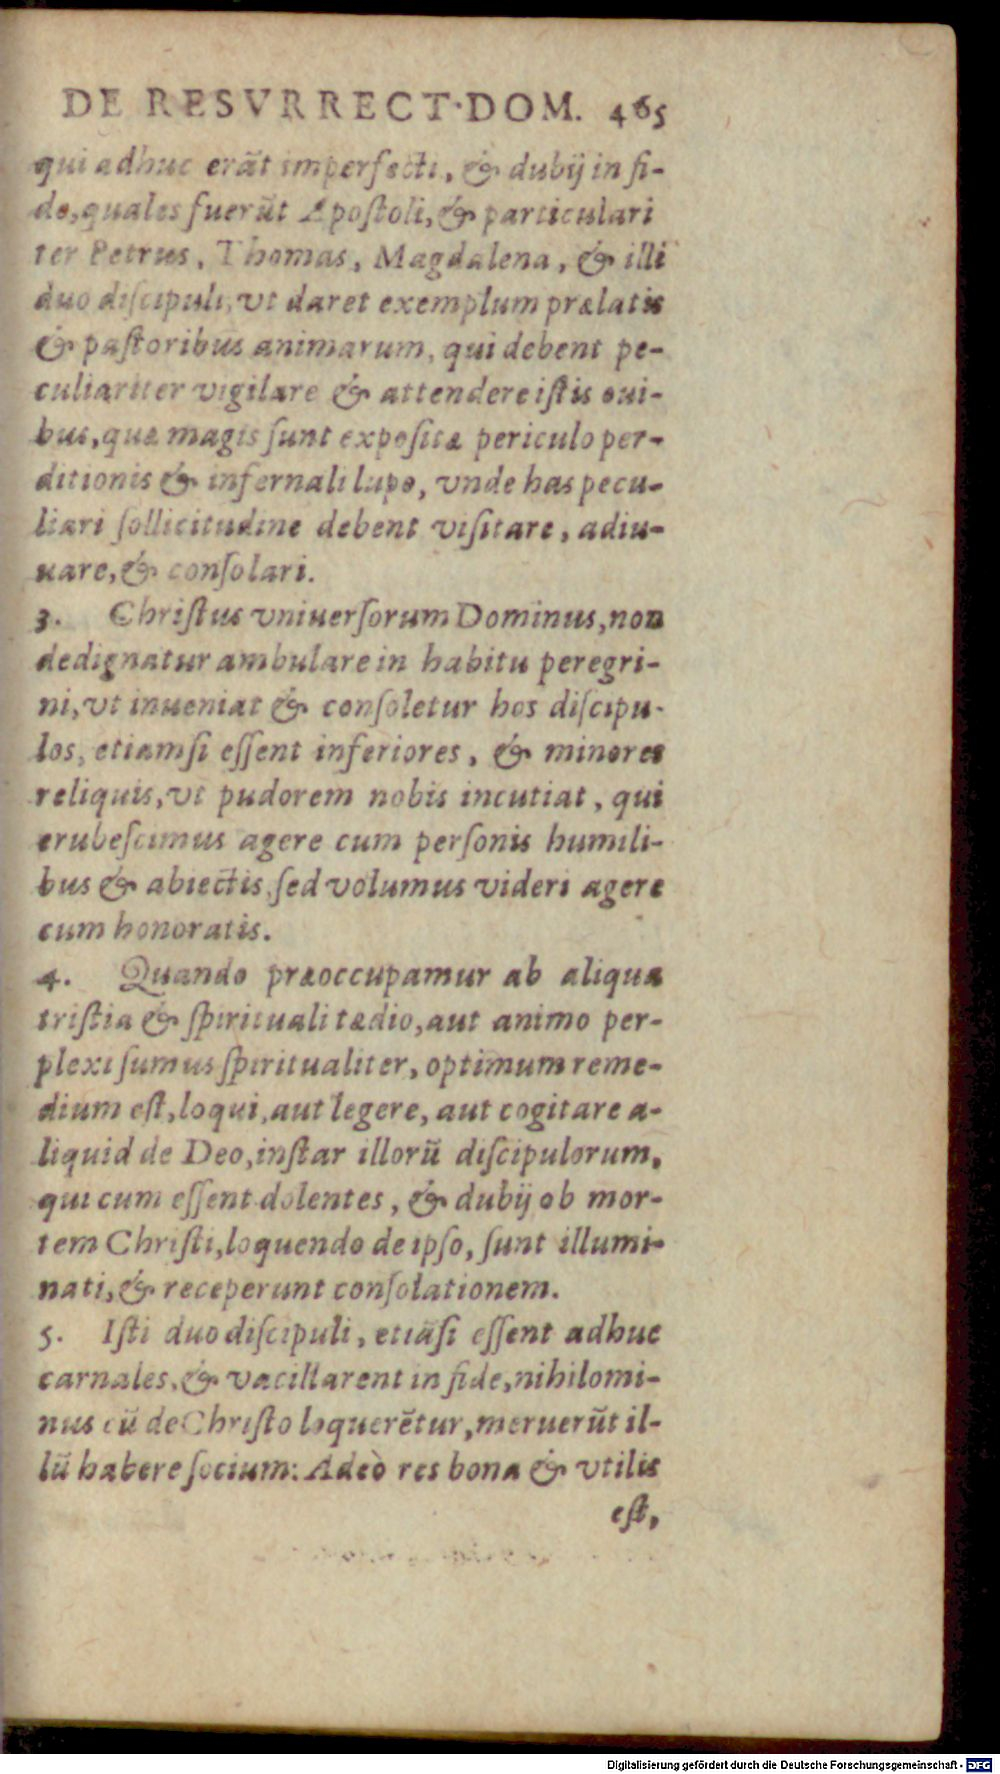 DE RESVRRECT·DOM. 465
qui adhuc erãt imperfecti, & dubij in fi-
de, quales fuerũt Apoſtoli, & particulari
ter Petrus, Thomas, Magdalena, & illi
duo diſcipuli, vt daret exemplum prælatis
& paſtoribus animarum, qui debent pe-
culiariter vigilare & attendere iſtis oui-
bus, quæ magis ſunt expoſitæ periculo per-
ditionis & infernali lupo, vnde has pecu-
liari ſollicitudine debent viſitare, adiu-
uare, & conſolari.
3. Chriſtus vniuerſorum Dominus, non
dedignatur ambulare in habitu peregri-
ni, vt inueniat & conſoletur hos diſcipu-
los, etiamſi eſſent inferiores, & minores
reliquis, vt pudorem nobis incutiat, qui
erubeſcimus agere cum perſonis humili-
bus & abiectis, ſed volumus videri agere
cum honoratis.
4. Quando præoccupamur ab aliqua
triſtia & ſpirituali tædio, aut animo per-
plexi ſumus ſpiritualiter, optimum reme-
dium eſt, loqui, aut legere, aut cogitare a-
liquid de Deo, inſtar illorũ diſcipulorum,
qui cum eſſent dolentes, & dubij ob mor-
tem Chriſti, loquendo de ipſo, ſunt illumi-
nati, & receperunt conſolationem.
5. Iſti duo diſcipuli, etiãſi eſſent adhuc
carnales, & vacillarent in fide, nihilomi-
nus cũ de Chriſto loquerẽtur, meruerũt il-
lũ habere ſocium: Adeò res bona & vtilis
eſt,
Digitalisierung gefördert durch die Deutsche Forschungsgemeinschaft - DFG